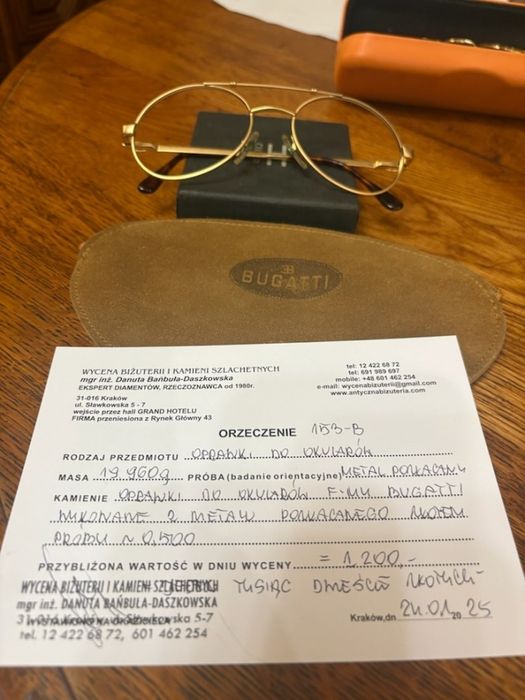 EB
BUGATTI
WYCENA BIŻUTERII I KAMIENI SZLACHETNYCH
mgr inż. Danuta Bańbuła-Daszkowska
EKSPERT DIAMENTÓW, RZECZOZNAWCA od 1980r.
31-016 Kraków
ul. Sławkowska 5 - 7
wejście przez hall GRAND HOTELU
FIRMA przeniesiona z Rynek Główny 43
tel: 12 422 68 72
tel: 691 989 697
mobile: +48 601 462 254
e-mail: wycenabizuterii@gmail.com
www.antycznabizuteria.com
ORZECZENIE 153-B
RODZAJ PRZEDMIOTU OPRAWKI DO OKULARÓW
MASA 19.960g PRÓBA (badanie orientacyjne) METAL POZŁACANY
KAMIENIE OPRAWKI DO OKULARÓW FIRMY BUGATTI
WYKONANE Z METALU POZŁACANEGO ZŁOTEM
PRÓBY ~ 0,500
PRZYBLIŻONA WARTOŚĆ W DNIU WYCENY = 1.200,-
TYSIĄC DWIEŚCIE ZŁOTYCH-
WYCENA BIŻUTERII I KAMIENI SZLACHETNYCH
mgr inż. DANUTA BAŃBUŁA-DASZKOWSKA
5-7
tel. 12 422 68 72, 601 462 254
Kraków, dn 24.01 2025